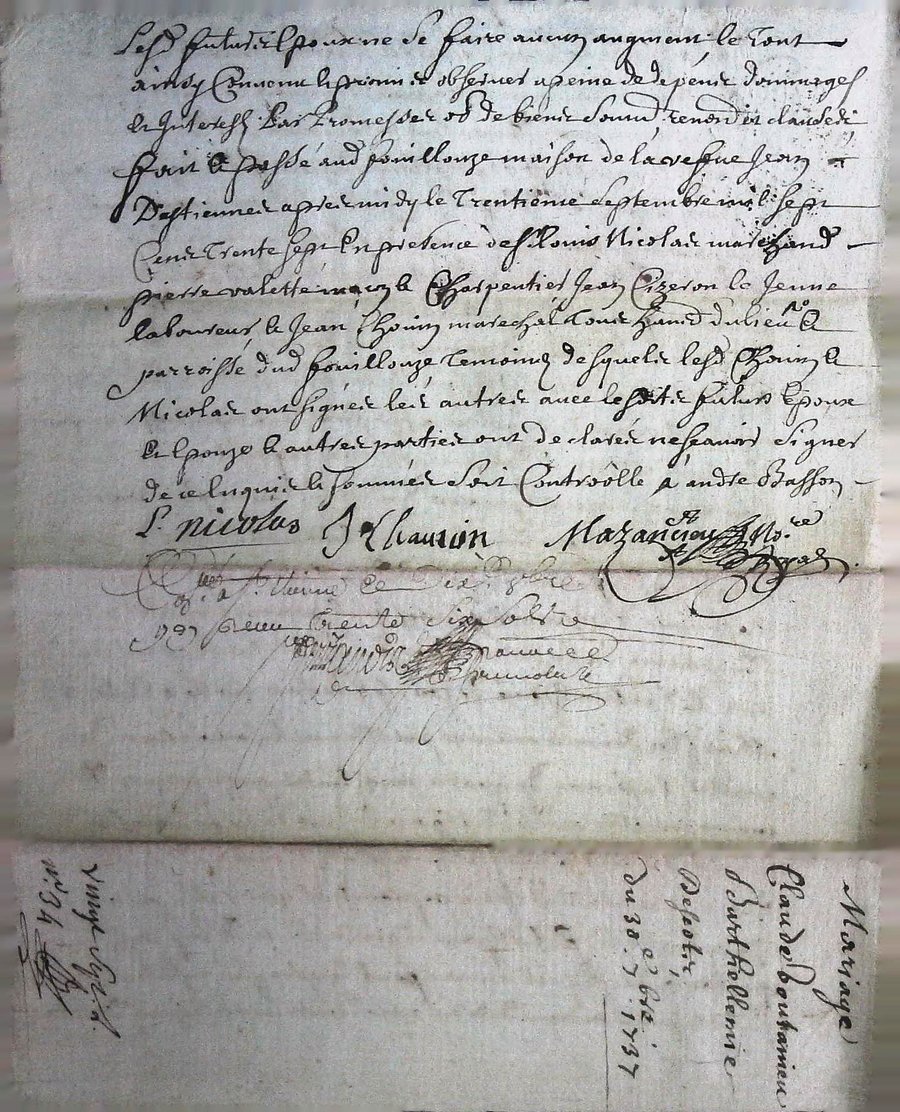 Lesd futurs Epoux ne se faire aucun augment, le tout
ainsy Convenu et promis observer a peine de depens dommages
et Interests Par Promesses ob de biens Soumd renond et clauses
fait et passé aud fouillouze maison de la Jean
Destiennes apres midy le Trentieme Septembre mil sept
Cens Trente sept En presence de Sr Louis Nicolas marchand
pierre valette et Charpentier Jean Cizeron le Jeune
laboureur et Jean Chouin marechal tous du lieu et
parroisse dud fouillouze Temoins desquels lesd Chouin et
Nicolas ont signés les autres avec lesdits futurs Epoux
et Epouze et autres parties ont declarés ne scavoir Signer
de ce Enquis et sommés Soit Controolle a andre Basson
L. nicolas J Chauuin Mazancieu No.re
Royal
a St. Etienne ce Dix 8bre
1737 Receu Trente Six Solds
Mariage
Claude
Barthellemie
Du 30.e 7.bre 1737
vingt
no 34